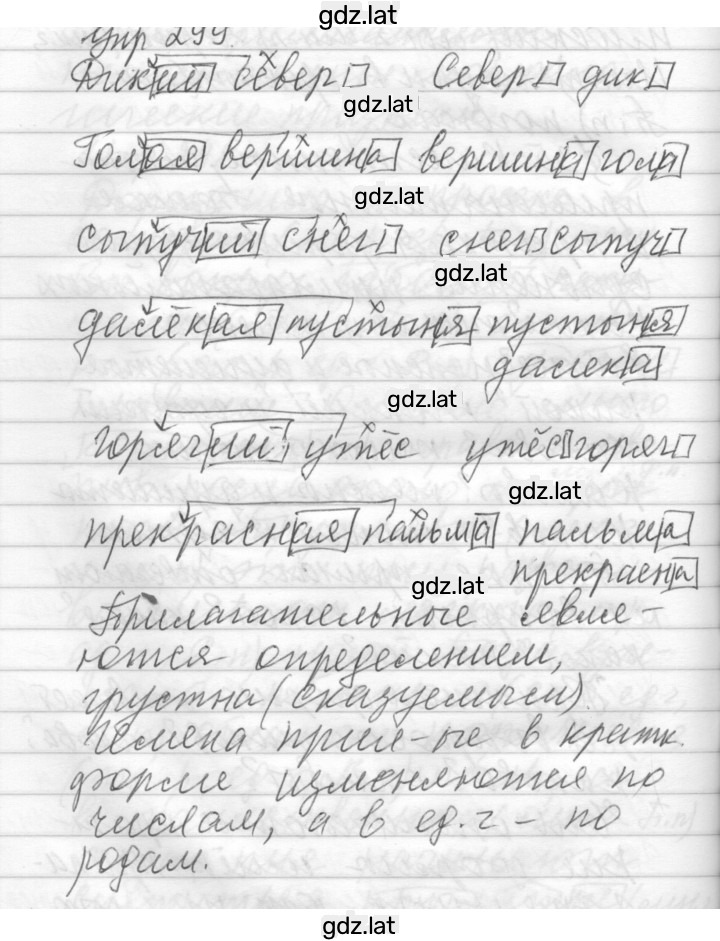 gdz.lat
Упр 299.
Дикий север Север дик
gdz.lat
Голая вершина вершина гола
gdz.lat
сыпучий снег снег сыпуч
gdz.lat
далёкая пустыня пустыня
далека
gdz.lat
горячий утёс утёс горяч
gdz.lat
прекрасная пальма пальма
прекрасна
gdz.lat
Прилагательные явля-
ются определением,
грустна (сказуемым).
Имена прил-ые в кратк.
форме изменяются по
числам, а в ед.ч – по
родам.
gdz.lat